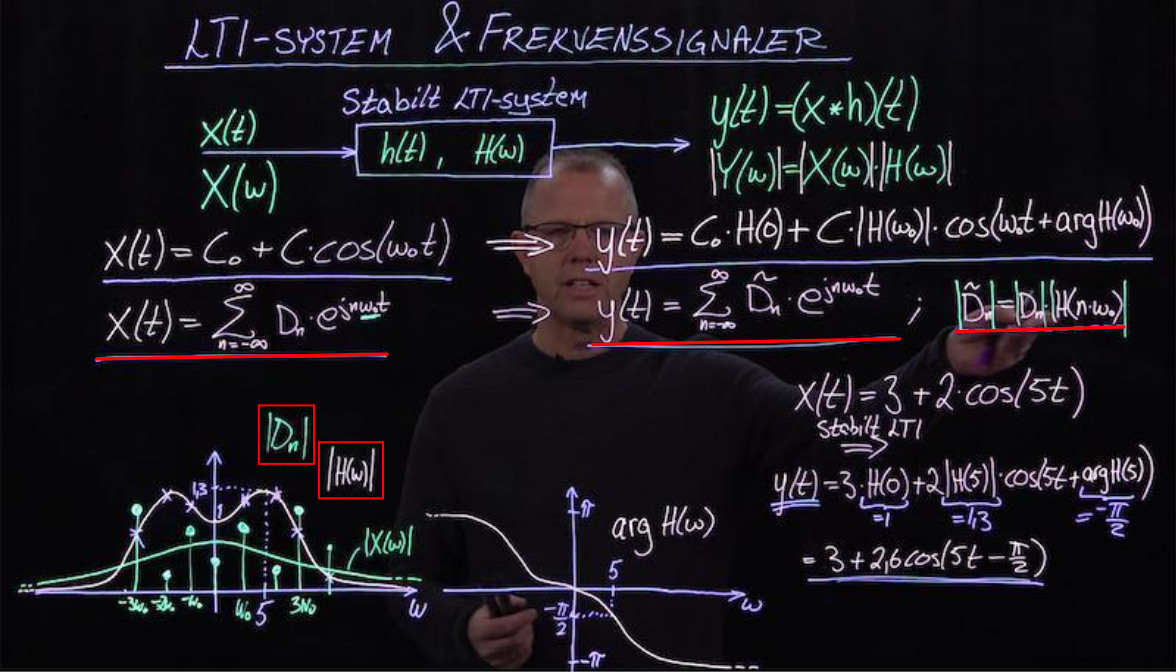 LTI-SYSTEM & FREKVENSSIGNALER
Stabilt LTI-system
x(t)
X(w)
h(t), H(w)
y(t) = (x * h)(t)
|Y(w)| = |X(w)|·|H(w)|
x(t) = C₀ + C·cos(w₀t) ⟹ y(t) = C₀·H(0) + C·|H(w₀)|·cos(w₀t + arg H(w₀))
x(t) = ∑ₙ₌₋∞^∞ Dₙ·e^{jnw₀t} ⟹ y(t) = ∑ₙ₌₋∞^∞ D̃ₙ·e^{jnw₀t} ; |D̃ₙ| = |Dₙ|·|H(n·w₀)|
x(t) = 3 + 2·cos(5t)
stabilt LTI
⟹
y(t) = 3·H(0) + 2|H(5)|·cos(5t + arg H(5))
=1 =1,3 = -π/2
= 3 + 2,6 cos(5t - π/2)
|Dₙ|
|H(w)|
1,3
1
|X(w)|
-3w₀ -2w₀ -w₀ w₀ 5 3w₀ w
π
arg H(w)
5
w
-π/2
-π